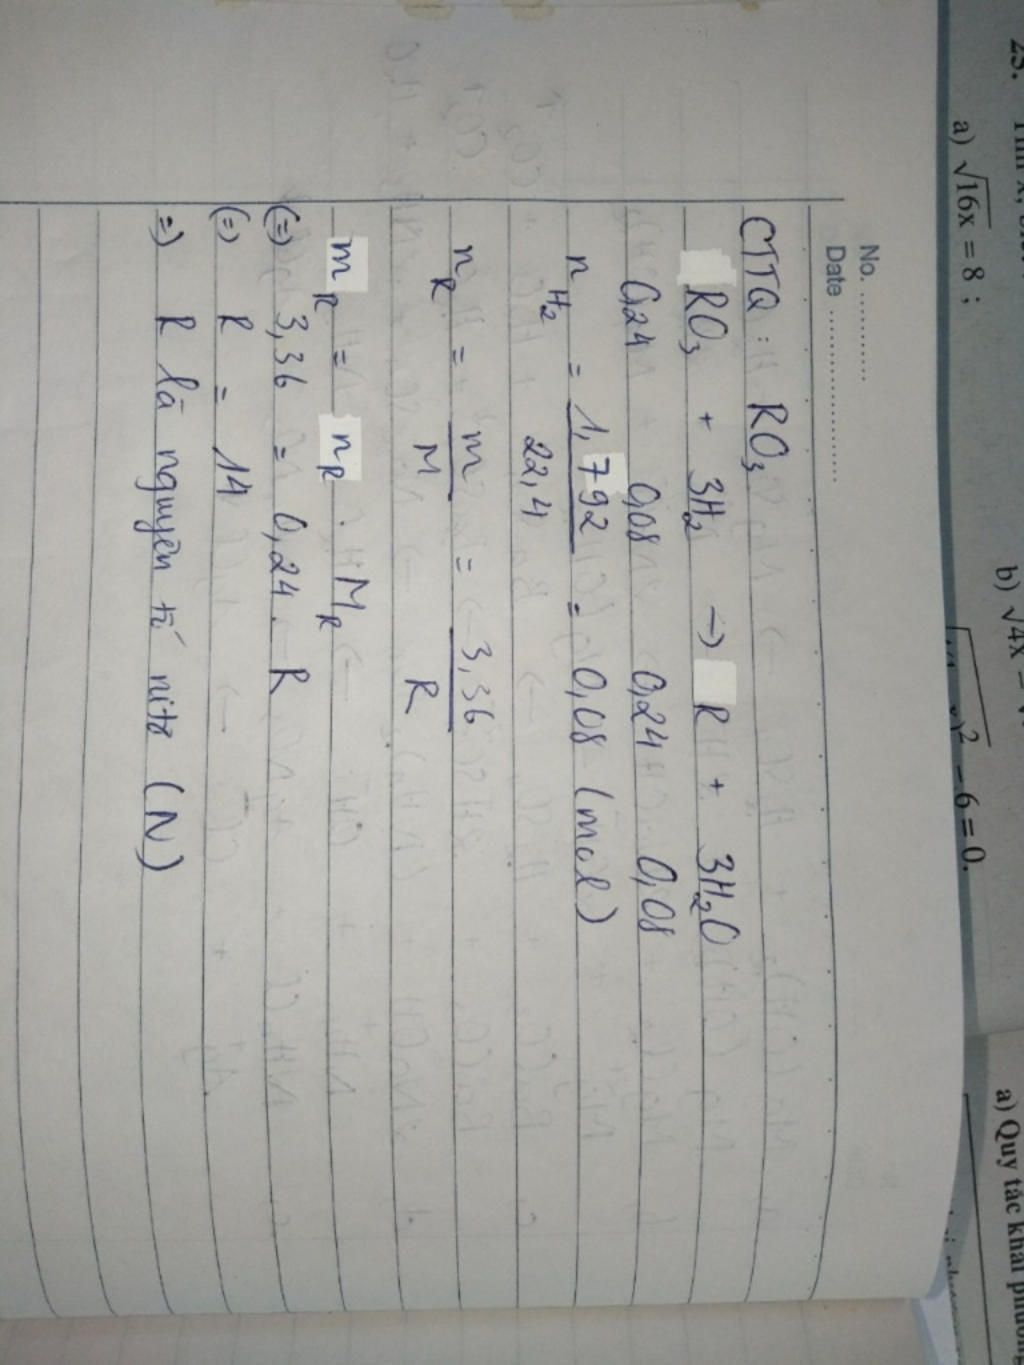 23.
a) √16x = 8 ;
b) √4x =
² - 6 = 0.
a) Quy tắc khai phương
No. ............
Date ........................
CTTQ : RO₃
RO₃ + 3H₂ → R + 3H₂O
0,24 0,08 0,24 0,08
n H₂ = 1,792 / 22,4 = 0,08 (mol)
n R = m / M = 3,36 / R
m R = n R . M R
(=) 3,36 = 0,24 . R
(=) R = 14
=) R là nguyên tố nitơ (N)